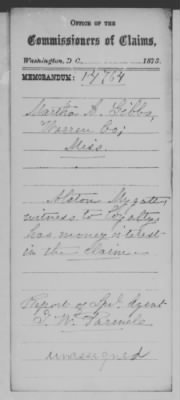 OFFICE OF THE
Commissioners of Claims,
Washington, D. C., 1873.
MEMORANDUM: 14784
Martha A. Gibbs,
Warren Co;
Miss.
Alston Mygatt,
witness to loyalty,
has money interest
in the claim.
Report of Spcl. Agent
unassigned